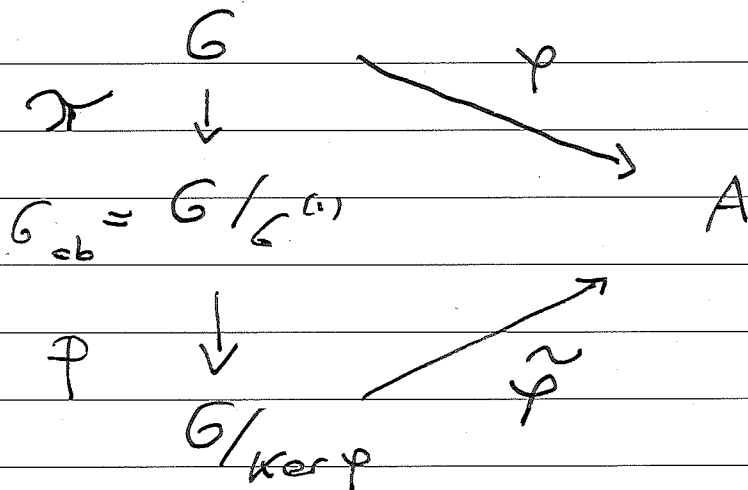 G
φ
π
G_ab = G/G^(1)
A
p
φ̃
G/Ker φ